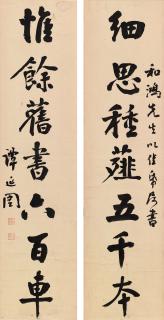 和鴻先生以佳帋屬書
細思種薤五千本
惟餘舊書六百車
譚延闓